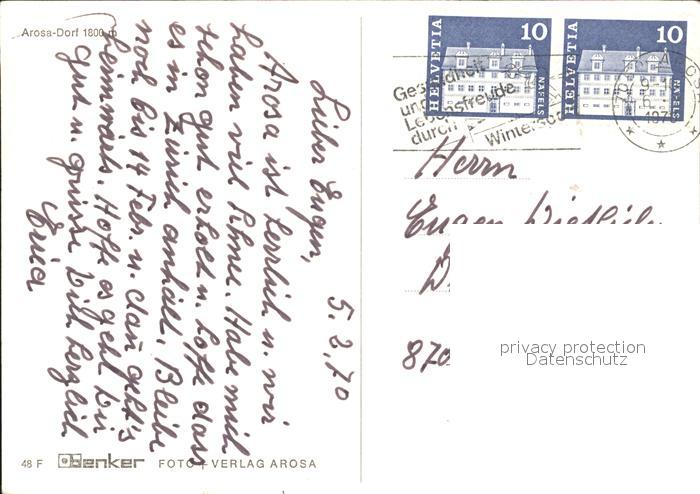 Arosa-Dorf 1800 m
5. 2. 70
Lieber Eugen,
Arosa ist herrlich u. wir
haben viel Schnee. Habe mich
schon gut erholt u. hoffe dass
es in Zürich anhält. Bleibe
noch bis 14 Febr. u. dann geht's
heimwärts. Hoffe es geht Dir
gut u. grüsse Dich herzlich
Erica
48 F Denker FOTO + VERLAG AROSA
HELVETIA 10 NÄFELS
HELVETIA 10 NÄFELS
Gesundheit
und
Lebensfreude
durch
Wintersport
Herrn
Eugen
D.
870
privacy protection
Datenschutz